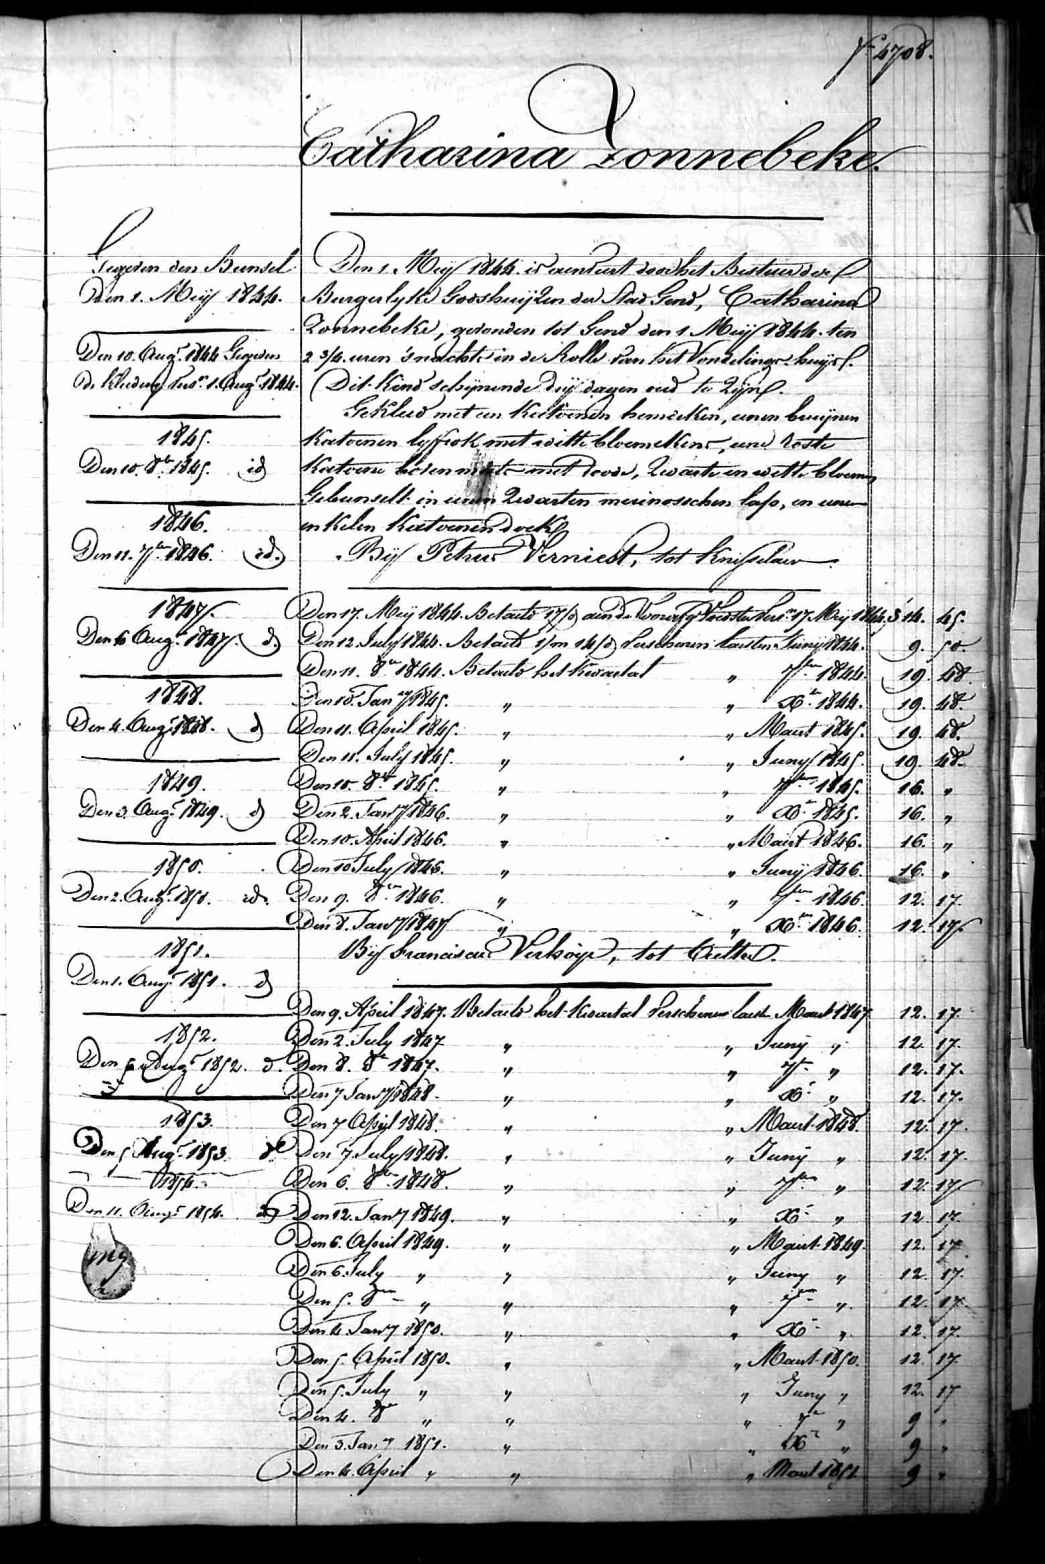 fo 4708.
Catharina Zonnebeke.
Gegeven den Bunsel
den 1. Meij 1844.
Den 10. Augt 1844 Gegeven
de kleeding 1. Augt 1844.
1845.
Den 10. 8br 1845. id
1846.
Den 11. 7ber 1846. id.
1847.
Den 6 Augt 1847. id.
1848.
Den 4. Augt 1848. id
1849.
Den 3. Augt 1849. id
1850.
Den 2. Augt 1850. id.
1851.
Den 1. Augt 1851. id
1852.
Den 6 Augt 1852. id.
1853.
Den 5 Augt 1853 id
1854.
Den 11. Augt 1854. id
Den 1. Meij 1844. is aenveert door het Bestuer der
Burgerlyke Godshuijzen der Stad Gend, Catharina
Zonnebeke, gevonden tot Gend den 1. Meij 1844. ten
2 3/4 uren 's nachts in de Rolle van het Vondelinge-huijs.
(Dit kind schijnende drij dagen oud te zijn).
Gekleed met een katoenen hemdeken, eenen bruijnen
katoenen lyfrok met witte bloemekens, eene roste
katoene met roode, zwarte en witte bloemen
Gebunselt in eenen zwarten merinosschen lap, en eenen
enkelen katoenen doek.
Bij Petrus Verniest, tot Knesselaere
Den 17. Meij 1844. Betaelt 17 Meij 1844. 3 14. 45.
Den 12. July 1844. Betaelt 1/m 14/d Verschenen laesten Junij 1844. 9. 50.
Den 11. 8br 1844. Betaelt het Kwartael " 7ber 1844. 19. 48.
Den 10. Jany 1845. " " Xbr 1844. 19. 48.
Den 11. April 1845. " " Maert 1845. 19. 48.
Den 11. July 1845. " " Juny 1845. 19. 48.
Den 10. 8br 1845. " " 7ber 1845. 16. "
Den 2. Jany 1846. " " Xbr 1845. 16. "
Den 10. April 1846. " " Maert 1846. 16. "
Den 10 July 1846. " " Junij 1846. 16. "
Den 9. 8br 1846. " " 7ber 1846. 12. 17.
Den 8. Jany 1847 " " Xbr 1846. 12. 17.
Bij Franciscus Verhoije, tot Aeltre.
Den 9. April 1847. Betaelt het Kwartael Verschenen laest. Maert 1847 12. 17.
Den 2. July 1847 " " Juny " 12. 17.
Den 8. 8br 1847. " " 7br " 12. 17.
Den 7 Jany 1848. " " Xbr " 12. 17.
Den 7 April 1848. " " Maert 1848. 12. 17.
Den 7 July 1848. " " Juny " 12. 17.
Den 6. 8br 1848. " " 7ber " 12. 17
Den 12. Jany 1849. " " Xbr " 12. 17.
Den 6. April 1849. " " Maert 1849. 12. 17.
Den 6. July " " " Juny " 12. 17.
Den 5. 8br " " " 7ber " 12. 17.
Den 4. Jany 1850. " " Xbr " 12. 17.
Den 5. April 1850. " " Maert 1850. 12. 17.
Den 5. July " " " Juny " 12. 17
Den 4. 8br " " " 7br " 9 "
Den 3. Jany 1851. " " Xbr " 9 "
Den 4. April " " " Maert 1851 9 "